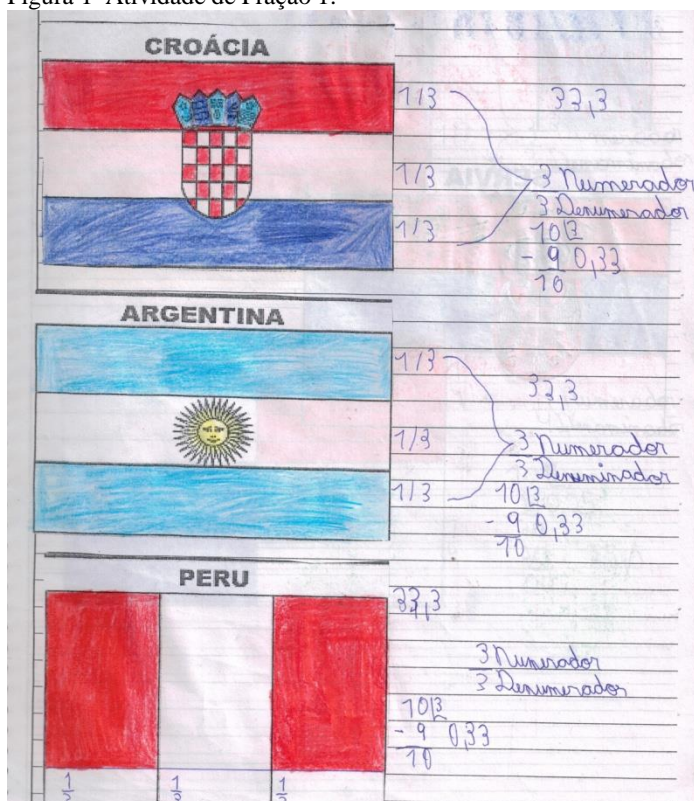 Figura 1- Atividade de Fração 1.
CROÁCIA
1/3
33,3
1/3
3 Numerador
3 Denumerador
1/3
10 3
- 9 0,33
10
ARGENTINA
1/3
33,3
1/3
3 Numerador
3 Denuminador
1/3
10 3
- 9 0,33
10
PERU
33,3
3 Numerador
3 Denumerador
10 3
- 9 0,33
10
1 1 1